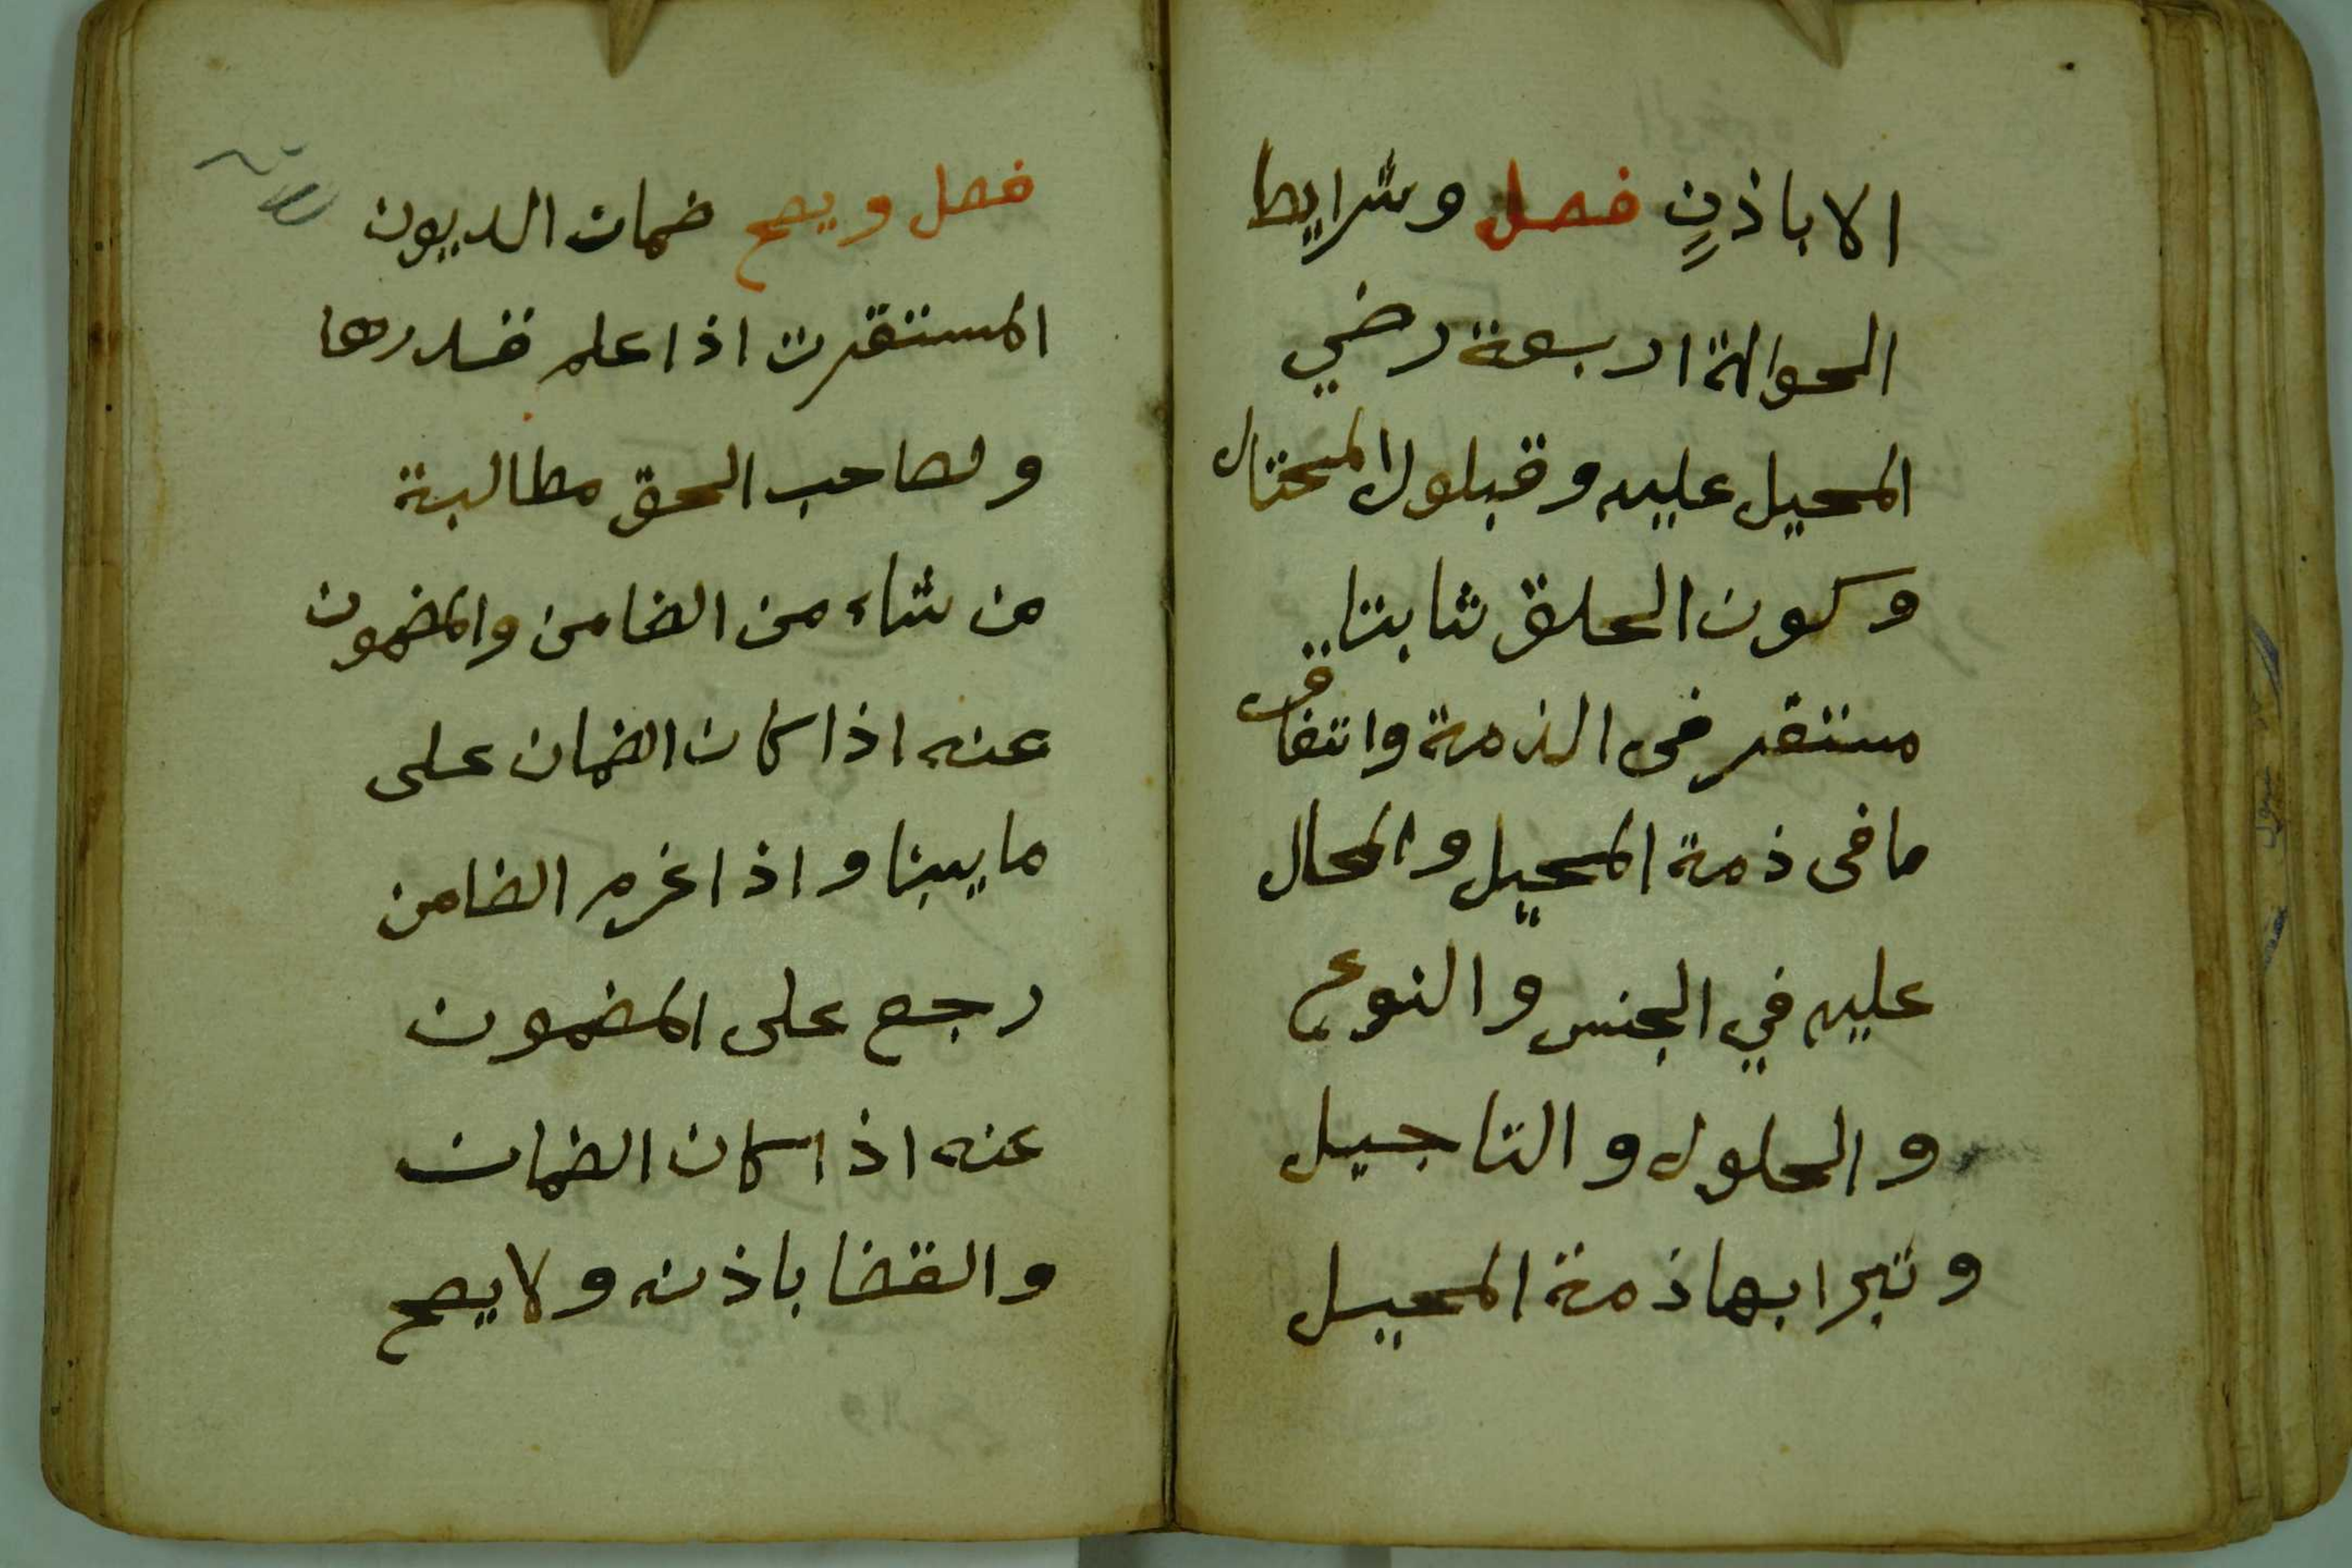 الا باذنٍ فصل وشرايط
الحوالة اربعة رضي
المحيل عليه وقبلول المحتال
وكون الحلق ثابتا
مستقر فى الذمة واتفاق
ما فى ذمة المحيل والمحال
عليه في الجنس والنوع
والحلول والتاجيل
وتبرا بها ذمة المحيل
فصل ويصح ضمان الديون
المستقرت اذا علم قدرها
ولصاحب الحق مطالبة
من شاء من الضامن والمضمون
عنه اذا كان الضمان على
ما يبنا واذا غرم الضامن
رجع على المضمون
عنه اذا كان الضمان
والقضا باذنه ولا يصح